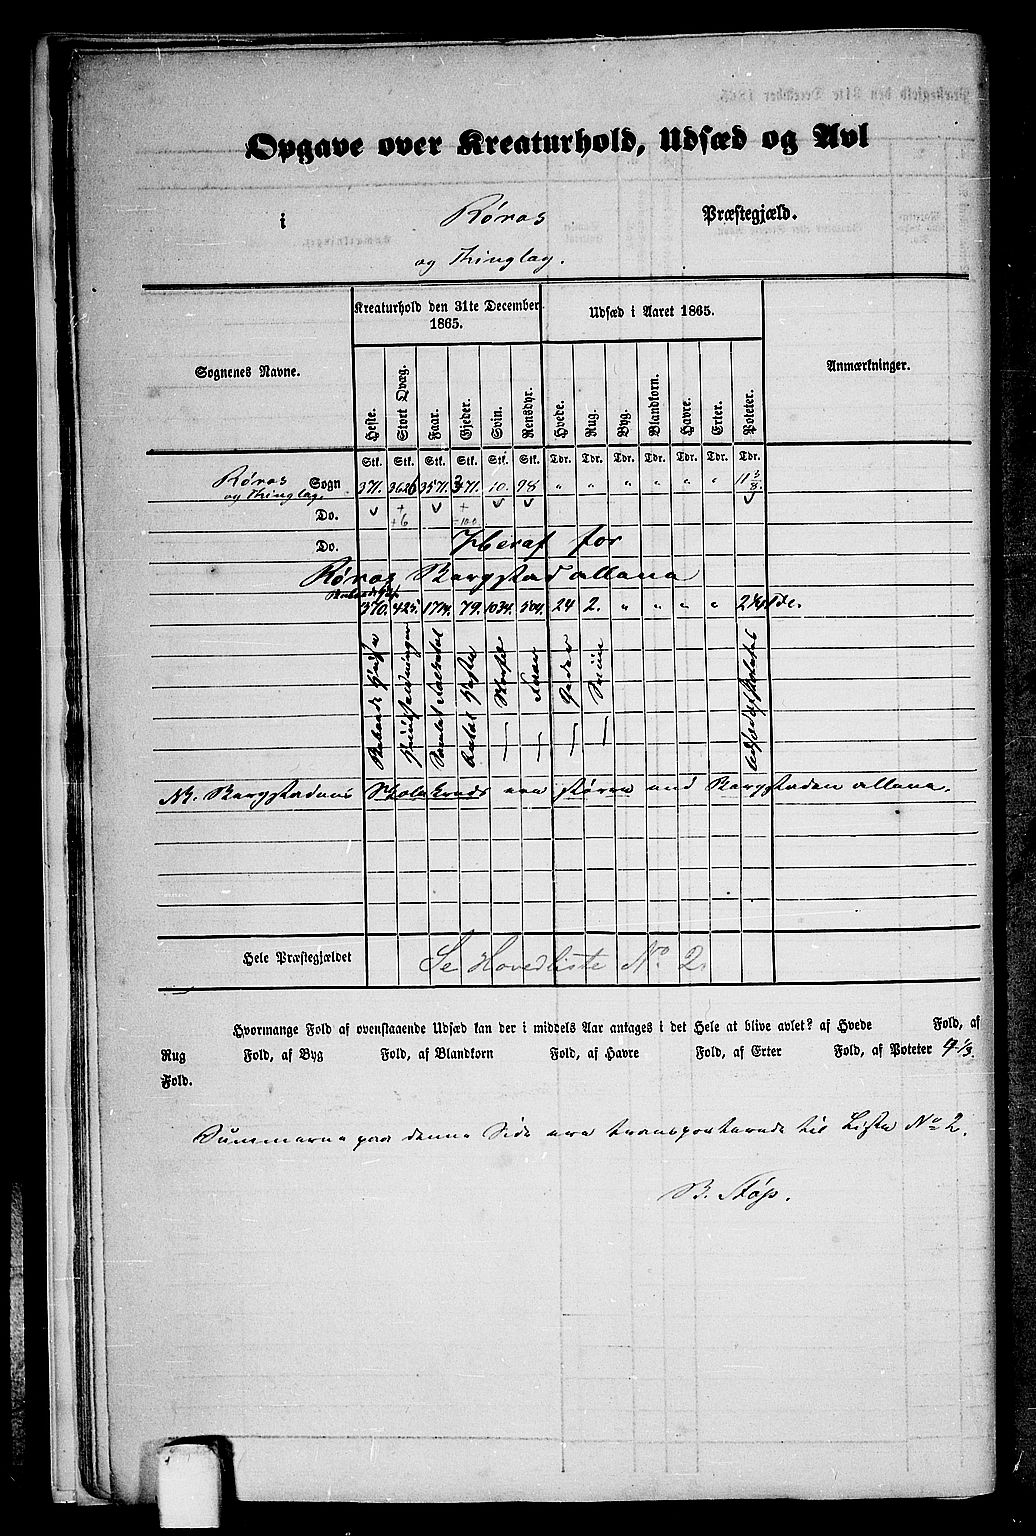 Opgave over Kreaturhold, Udsæd og Avl
i Røros Præstegjæld.
og Thinglag.
Sognenes Navne.
Kreaturhold den 31te December 1865.
Udsæd i Aaret 1865.
Anmærkninger.
Heste. Stort Qvæg. Faar. Gjeder. Svin. Rensdyr. Hvede. Rug. Byg. Blandkorn. Havre. Erter. Poteter.
Stk. Stk. Stk. Stk. Stk. Stk. Tdr. Tdr. Tdr. Tdr. Tdr. Tdr. Tdr.
Røros Sogn 371. 3626 3571. 371. 10. 98 " " " " " " 11 3/8.
og Thinglag.
Do. +6 -100
Do. Heraf for
Røros Bergstad allene
370. 425. 1714. 79. 1034. 504. 24 2. " " " " 2 1/4 Tde.
Beboede Huse
Huusholdninger
Samlet Folketal
Antal Heste
— Storfæ
— Faar
— Geder
— Sviin
Udsæd af Poteter
NB. Bergstadens Skolekreds er større end Bergstaden allene.
Hele Præstegjældet Se Hovedliste No. 2.
Hvormange Fold af ovenstaaende Udsæd kan der i middels Aar antages i det Hele at blive avlet? af Hvede Fold, af
Rug Fold, af Byg Fold, af Blandkorn Fold, af Havre Fold, af Erter Fold, af Poteter 4 1/3.
Fold.
Summerne paa denne Side ere transporterede til Liste No 2.
B. Støp.